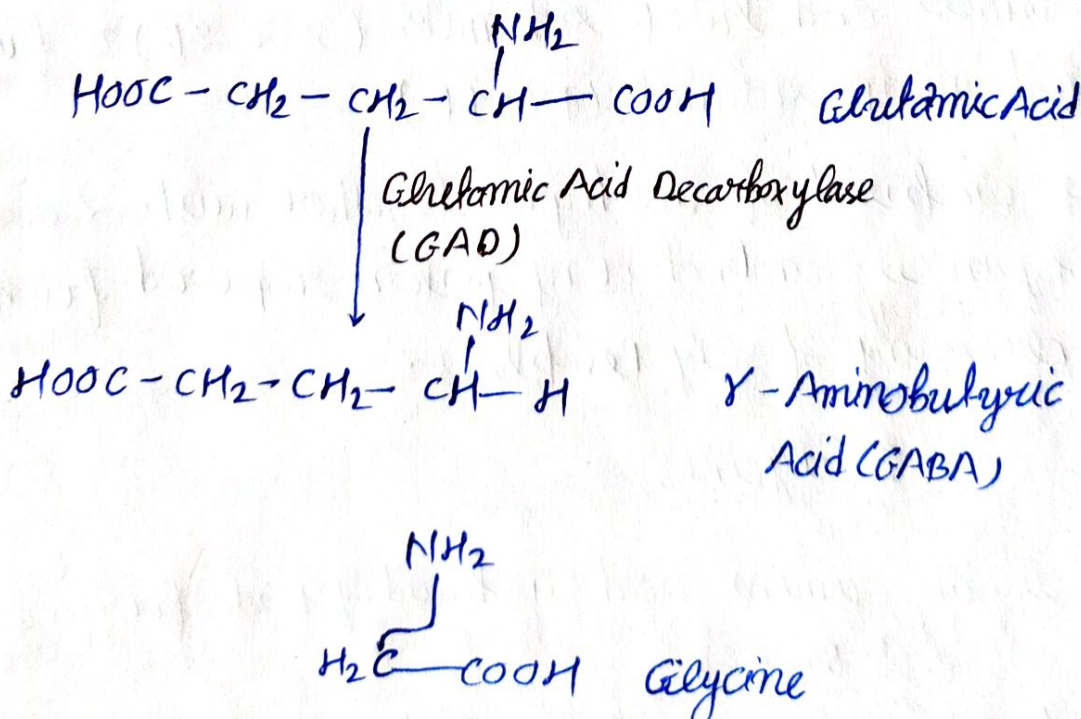 NH2
HOOC - CH2 - CH2 - CH - COOH Glutamic Acid
Glutamic Acid Decarboxylase
(GAD)
NH2
HOOC - CH2 - CH2 - CH - H γ - Aminobutyric
Acid (GABA)
NH2
H2C - COOH Glycine